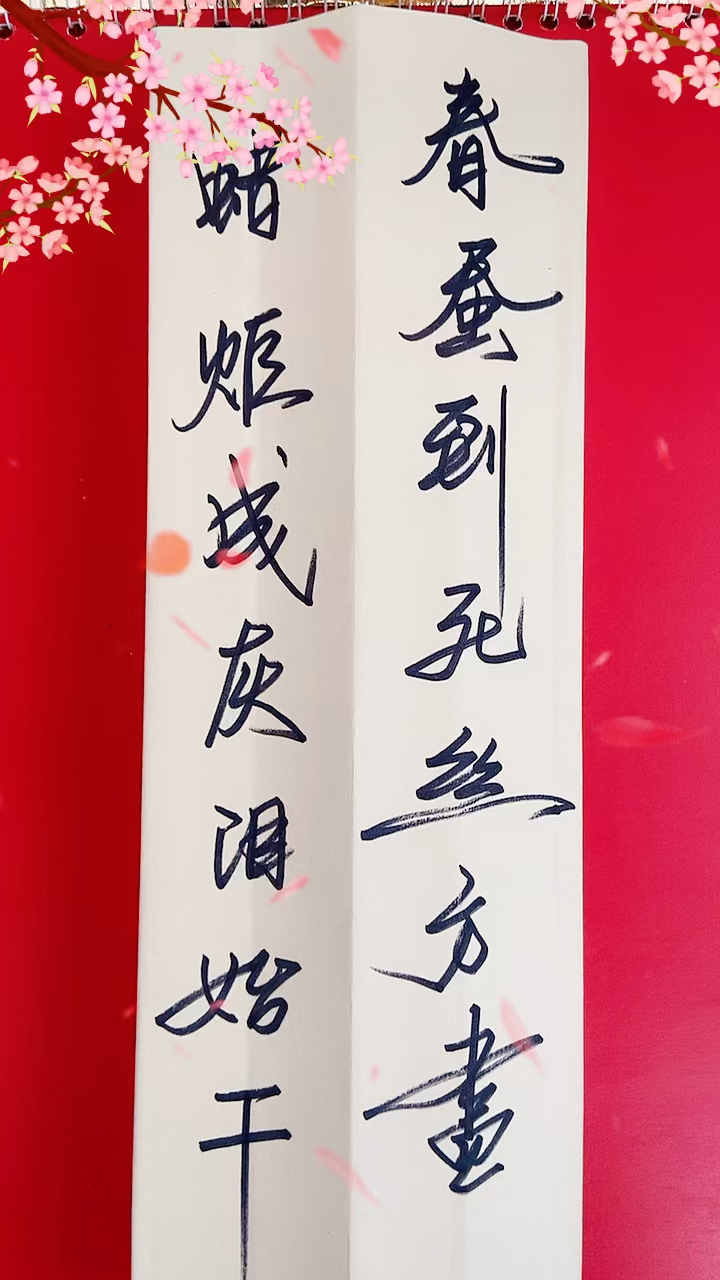 春蚕到死丝方盡
蜡炬成灰泪始干